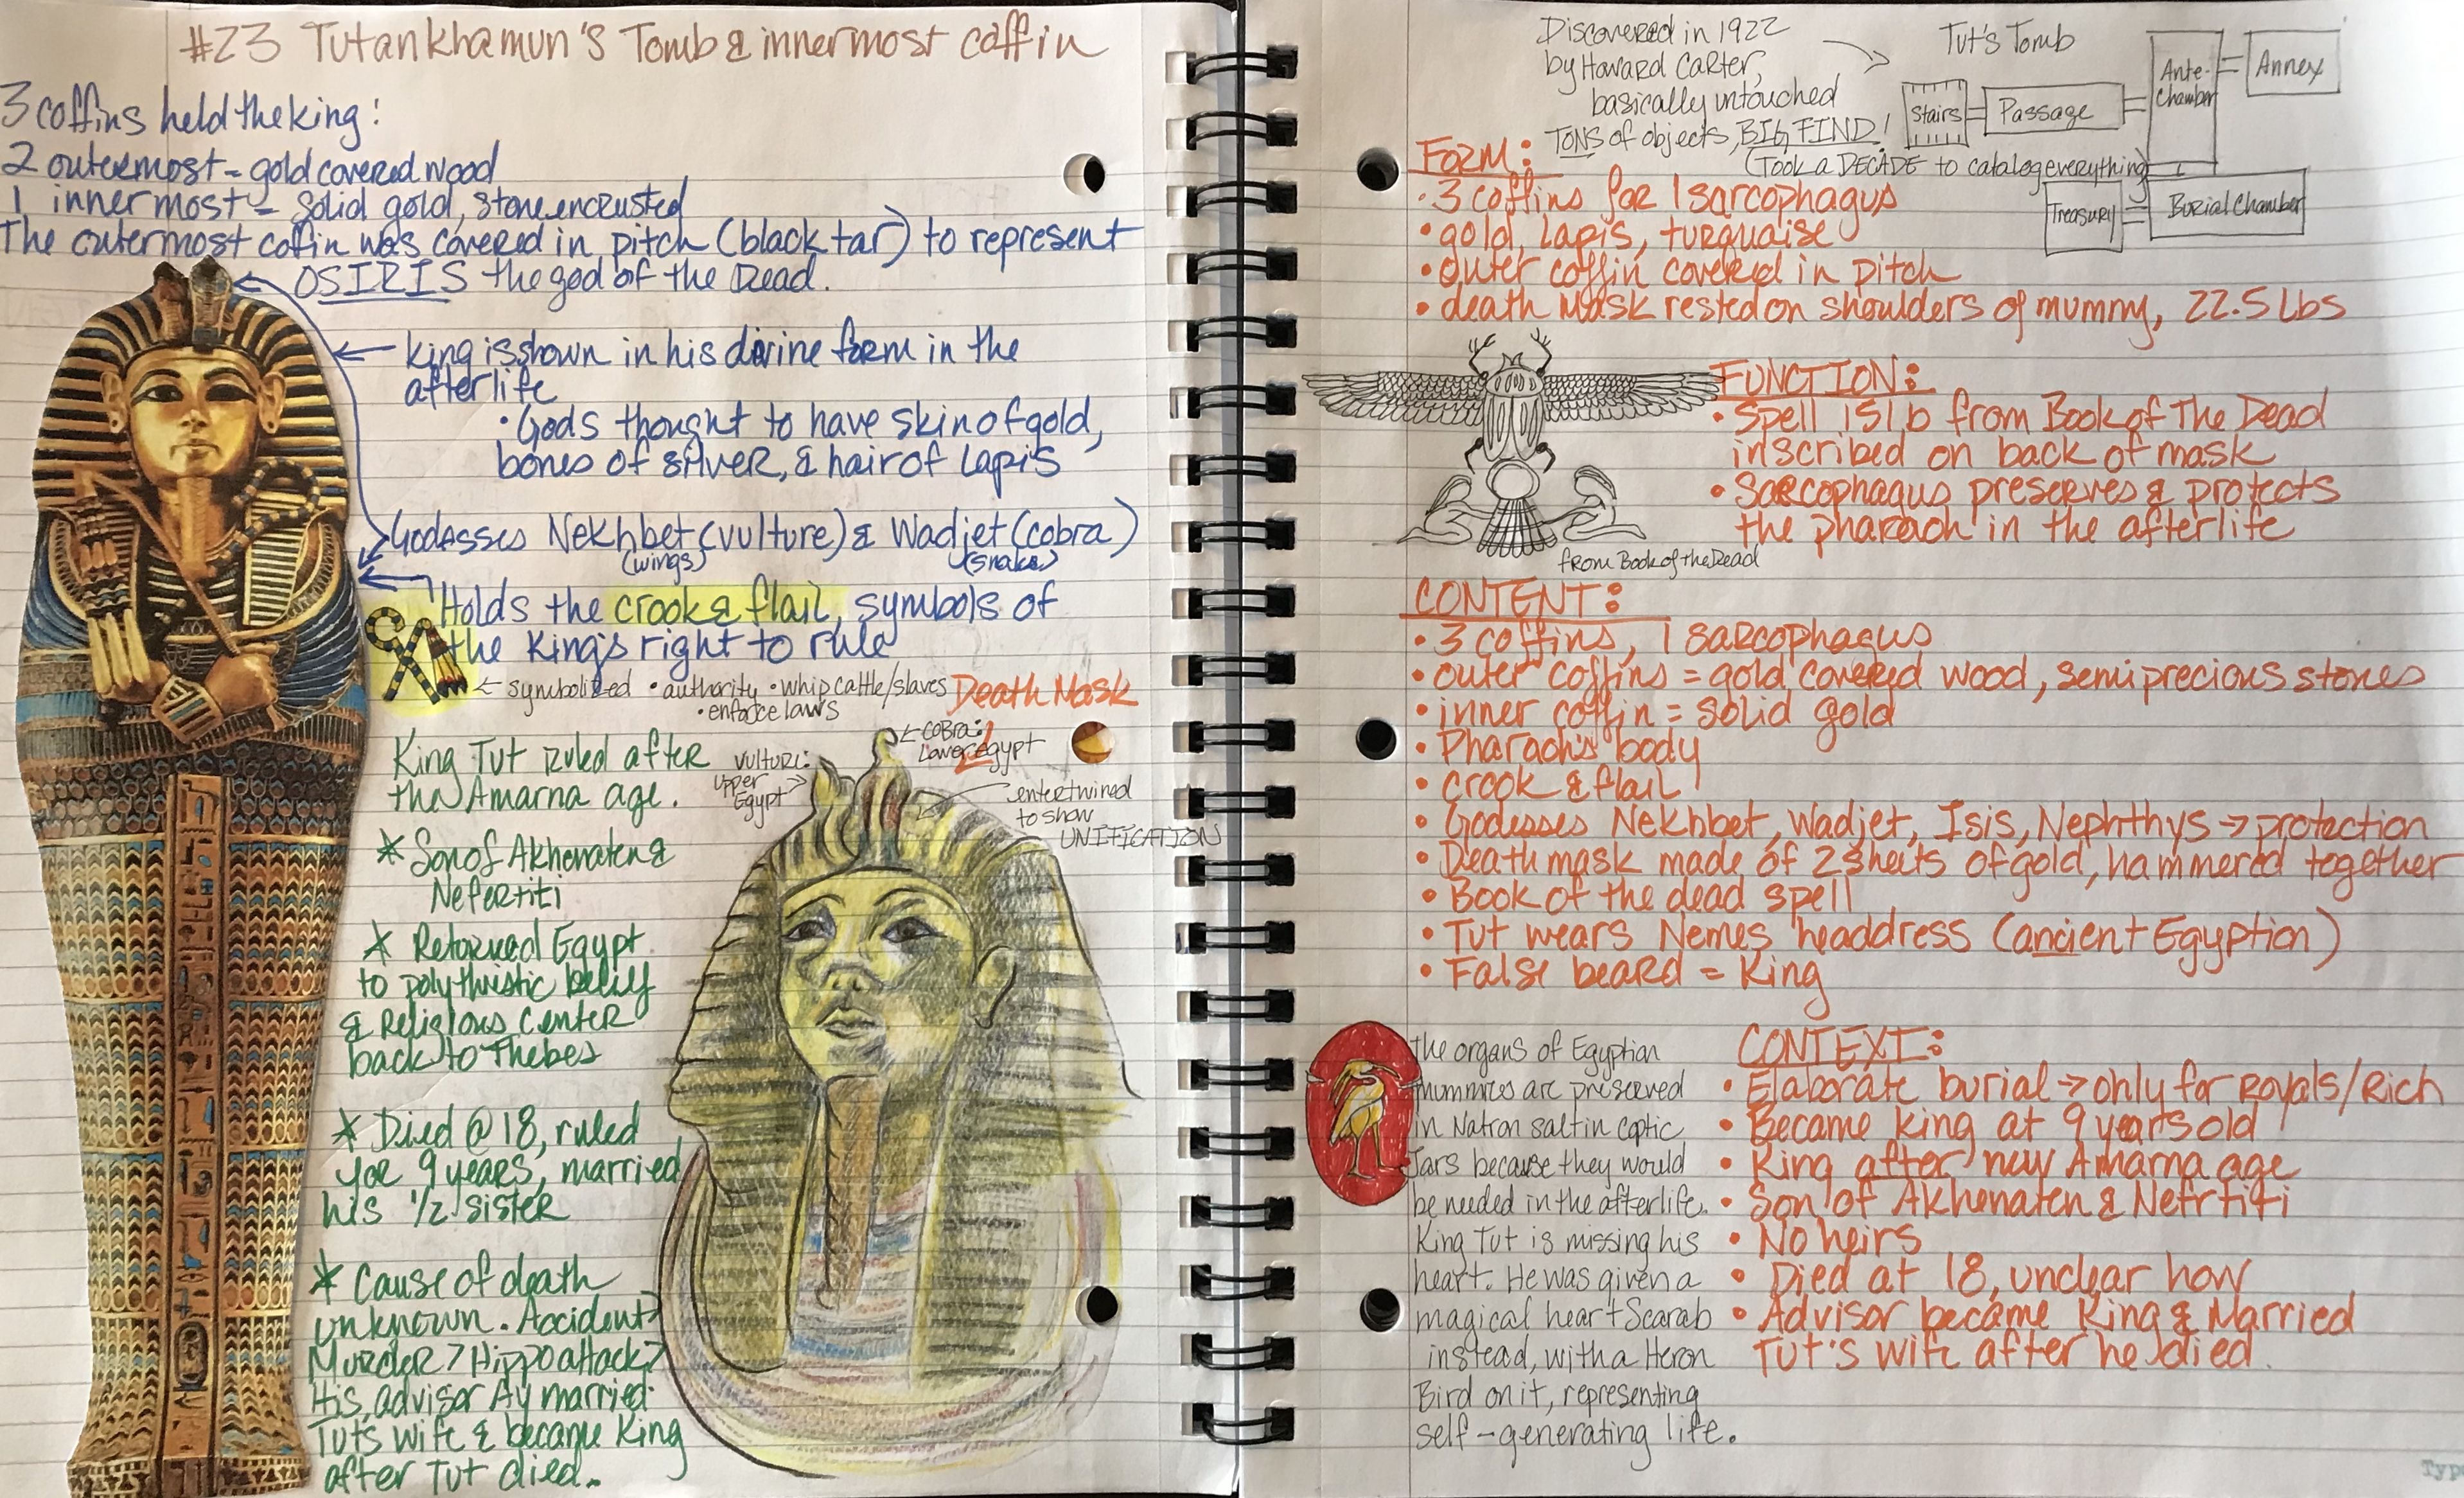 #23 Tutankhamun's Tomb & innermost coffin
3 coffins held the king:
2 outermost - gold covered wood
1 innermost - solid gold, stone encrusted
The outermost coffin was covered in pitch (black tar) to represent
OSIRIS the god of the Dead.
king is shown in his divine form in the
afterlife
· Gods thought to have skin of gold,
bones of silver, & hair of Lapis
Godesses Nekhbet (vulture) & Wadjet (cobra)
(wings) (snake)
Holds the crook & flail, symbols of
the King's right to rule
← symbolized · authority · whip cattle/slaves
· enforce laws
Death Mask
cobra:
Lower Egypt
vulture:
Upper
Egypt
entertwined
to show
UNIFICATION
King Tut ruled after
the Amarna age.
* Son of Akhenaten &
Nefertiti
* Returned Egypt
to polythistic belief
& Religious Center
back to Thebes
* Died @ 18, ruled
for 9 years, married
his 1/2 sister
* Cause of death
unknown. Accident?
Murder? Hippo attack?
His advisor Ay married
Tut's wife & became King
after Tut died.
Discovered in 1922
by Howard Carter,
basically untouched
TONS of objects, BIG FIND!
(Took a DECADE to catalog everything)
Tut's Tomb
Stairs
Passage
Ante-
Chamber
Annex
Treasury
Burial Chamber
Form:
· 3 coffins for 1 sarcophagus
· gold, Lapis, turquoise
· outer coffin covered in pitch
· death Mask rested on shoulders of mummy, 22.5 Lbs
FUNCTION:
· Spell 151b from Book of The Dead
inscribed on back of mask
· Sarcophagus preserves & protects
the pharaoh in the afterlife
from Book of the Dead
CONTENT:
· 3 coffins, 1 sarcophagus
· outer coffins = gold covered wood, semiprecious stones
· inner coffin = solid gold
· Pharaoh's body
· crook & flail
· Godesses Nekhbet, Wadjet, Isis, Nephthys → protection
· Death mask made of 2 sheets of gold, hammered together
· Book of the dead spell
· Tut wears Nemes headdress (ancient Egyption)
· False beard = King
the organs of Egyptian
mummies are preserved
in Natron salt in coptic
Jars because they would
be needed in the afterlife.
King Tut is missing his
heart. He was given a
magical heart Scarab
instead, with a Heron
Bird on it, representing
self-generating life.
CONTEXT:
· Elaborate burial → only for Royals/Rich
· Became king at 9 years old
· King after new Amarna age
· Son of Akhenaten & Nefrtiti
· No heirs
· Died at 18, unclear how
· Advisor became King & Married
Tut's wife after he died.